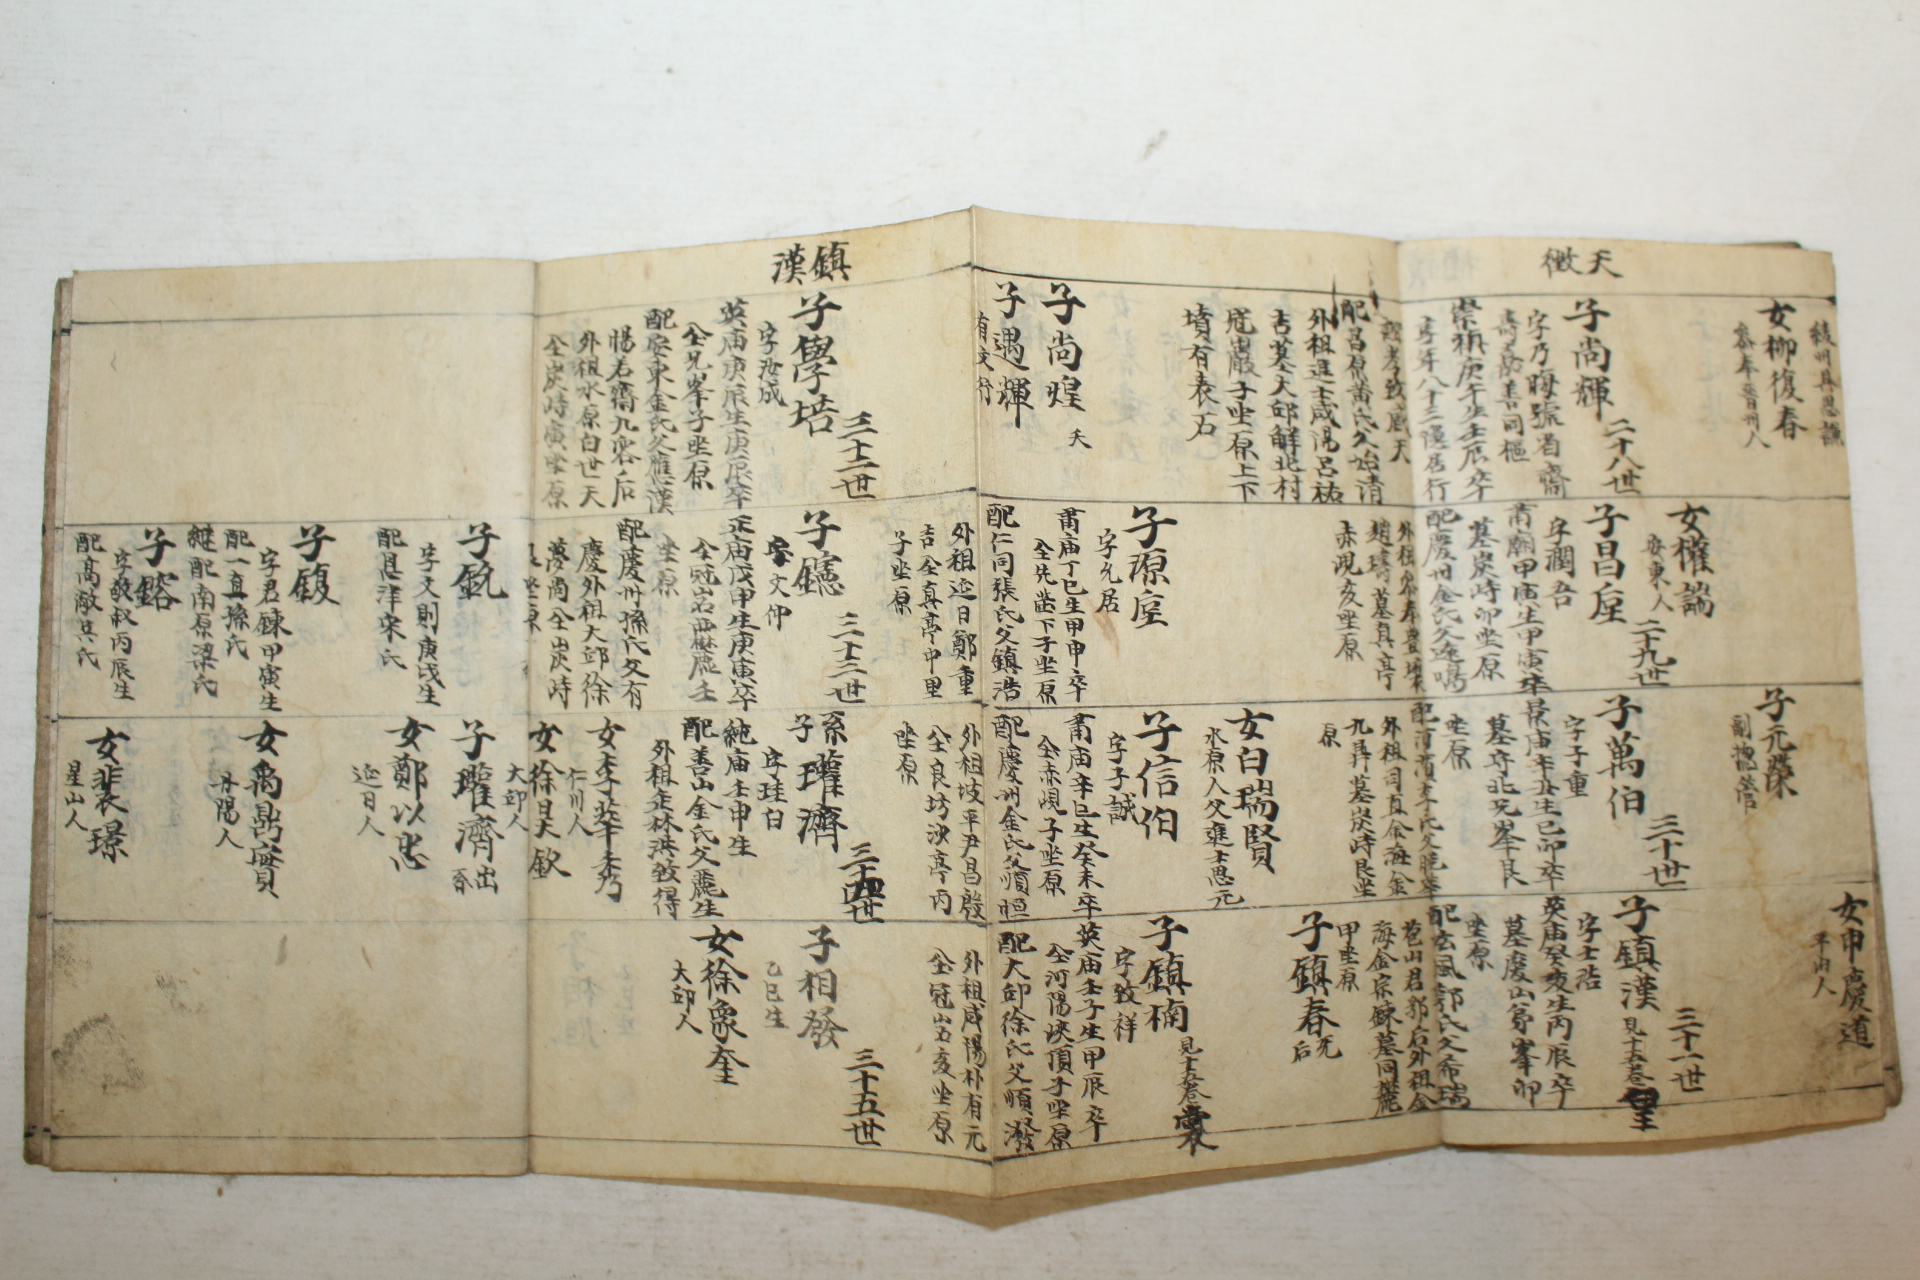 天微
綾州具思謙
女柳復春
參奉晉州人
子尚輝
二十八世
字乃晦號省齋
崇禎庚午生壬辰卒
享年八十三隱居行
配昌原黃氏父始清
外祖進士咸陽呂祐
吉墓大邱解北村
子坐原上下
墳有表石
子尚煌
夭
子遇輝
有文行
女權諯
安東人
子昌垕
二十九世
字潤吾
肅廟甲寅生甲寅卒
墓炭峙卯坐原
配慶州金氏父逵鳴
赤峴亥坐原
子源垕
字允居
肅庙丁巳生甲申卒
仝先塋下子坐原
配仁同張氏父鎮浩
外祖延日鄭重
吉仝真亭中里
子坐原
子元檃
副摠管
子萬伯
三十世
字子重
景庙辛丑生己卯卒
坐原
外祖司直金海金
九再墓炭峙艮坐
原
女白瑞賢
水原人父進士思元
子信伯
字子誠
肅庙辛巳生癸未卒
仝赤峴子坐原
配慶州金氏父順恒
外祖坡平尹昌殷
仝良坊決亭丙
坐原
女申慶道
平山人
子鎮漢
見十五卷
三十一世
字士浩
英庙癸亥生丙辰卒
墓慶山弟峯卯
坐原
配玄風郭氏父希瑞
苞山君郭后外祖金
海金宗鍊墓同麓
甲坐原
子鎮春
无后
子鎮楠
見十五卷
字致祥
英庙壬子生甲辰卒
仝河陽峽頂子坐原
配大邱徐氏父順潑
外祖咸陽朴有元
仝冠岩亥坐原
鎮漢
子學培
三十二世
字汝成
英庙庚辰生庚辰卒
仝兄峯子坐原
配安東金氏父應漢
惕若齋九容后
外祖水原白世天
仝炭峙寅坐原
子鑢
三十三世
字文仲
正庙戊申生庚寅卒
仝冠岩西麓壬
坐原
配慶州孫氏父有
慶外祖大邱徐
夢尚仝炭峙
艮坐原
子釚
字又則庚戌生
配恩津宋氏
子鍑
字君鍊甲寅生
配一直孫氏
継配南原梁氏
子鎔
字敬叔丙辰生
配高敞吳氏
系子瓘濟
三十四世
字珪白
純庙壬申生
配善山金氏父麗生
外祖金林洪致得
女李華秀
仁川人
女徐昊欽
大邱人
子瓘濟
出系
女鄭以忠
延日人
女禹鼎賓
丹陽人
女裴璟
星山人
子相發
三十五世
乙巳生
女徐象奎
大邱人